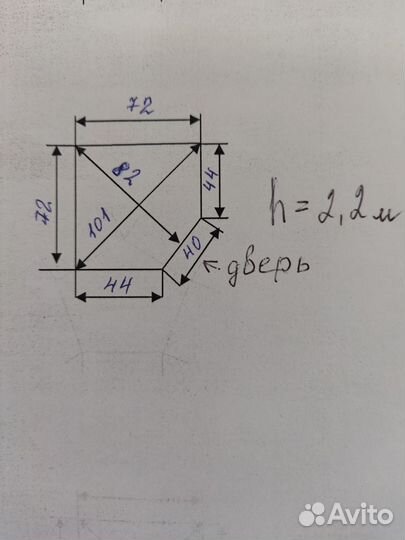 72
82
44
72
101
h = 2,2 м
40
← дверь
44
Avito